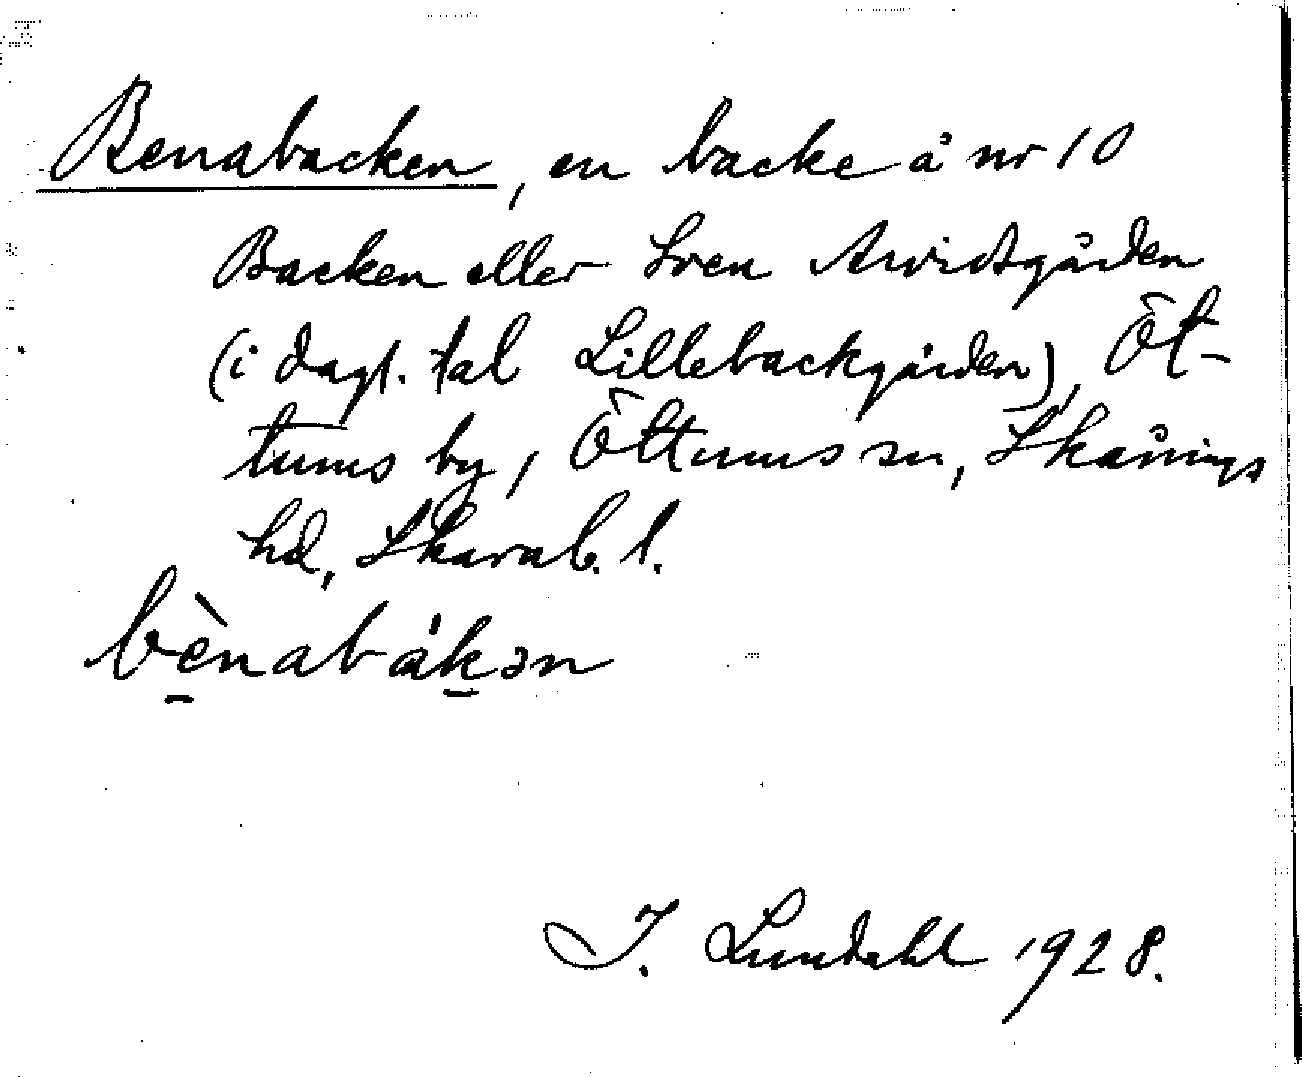 Benabacken, en backe å nr 10
Backen eller Sven Arvidsgården
(i dagl. tal Lillebackgården), Öt-
tums by, Öttums sn, Skånings
hd, Skarab. l.
bènabákən
J. Lundahl 1928.